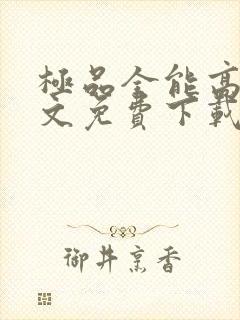 極品全能高
文免費下載
御井烹香